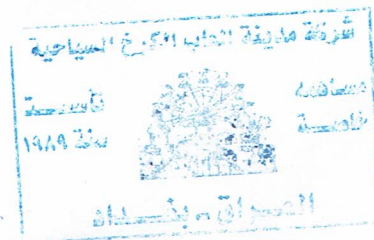 شركة مدينة العاب الكرخ السياحية
مساهمة تأسست
خاصة سنة ١٩٨٩
العراق - بغداد